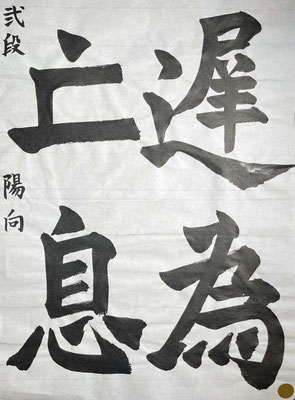 遅為
亡息
弐段 陽向